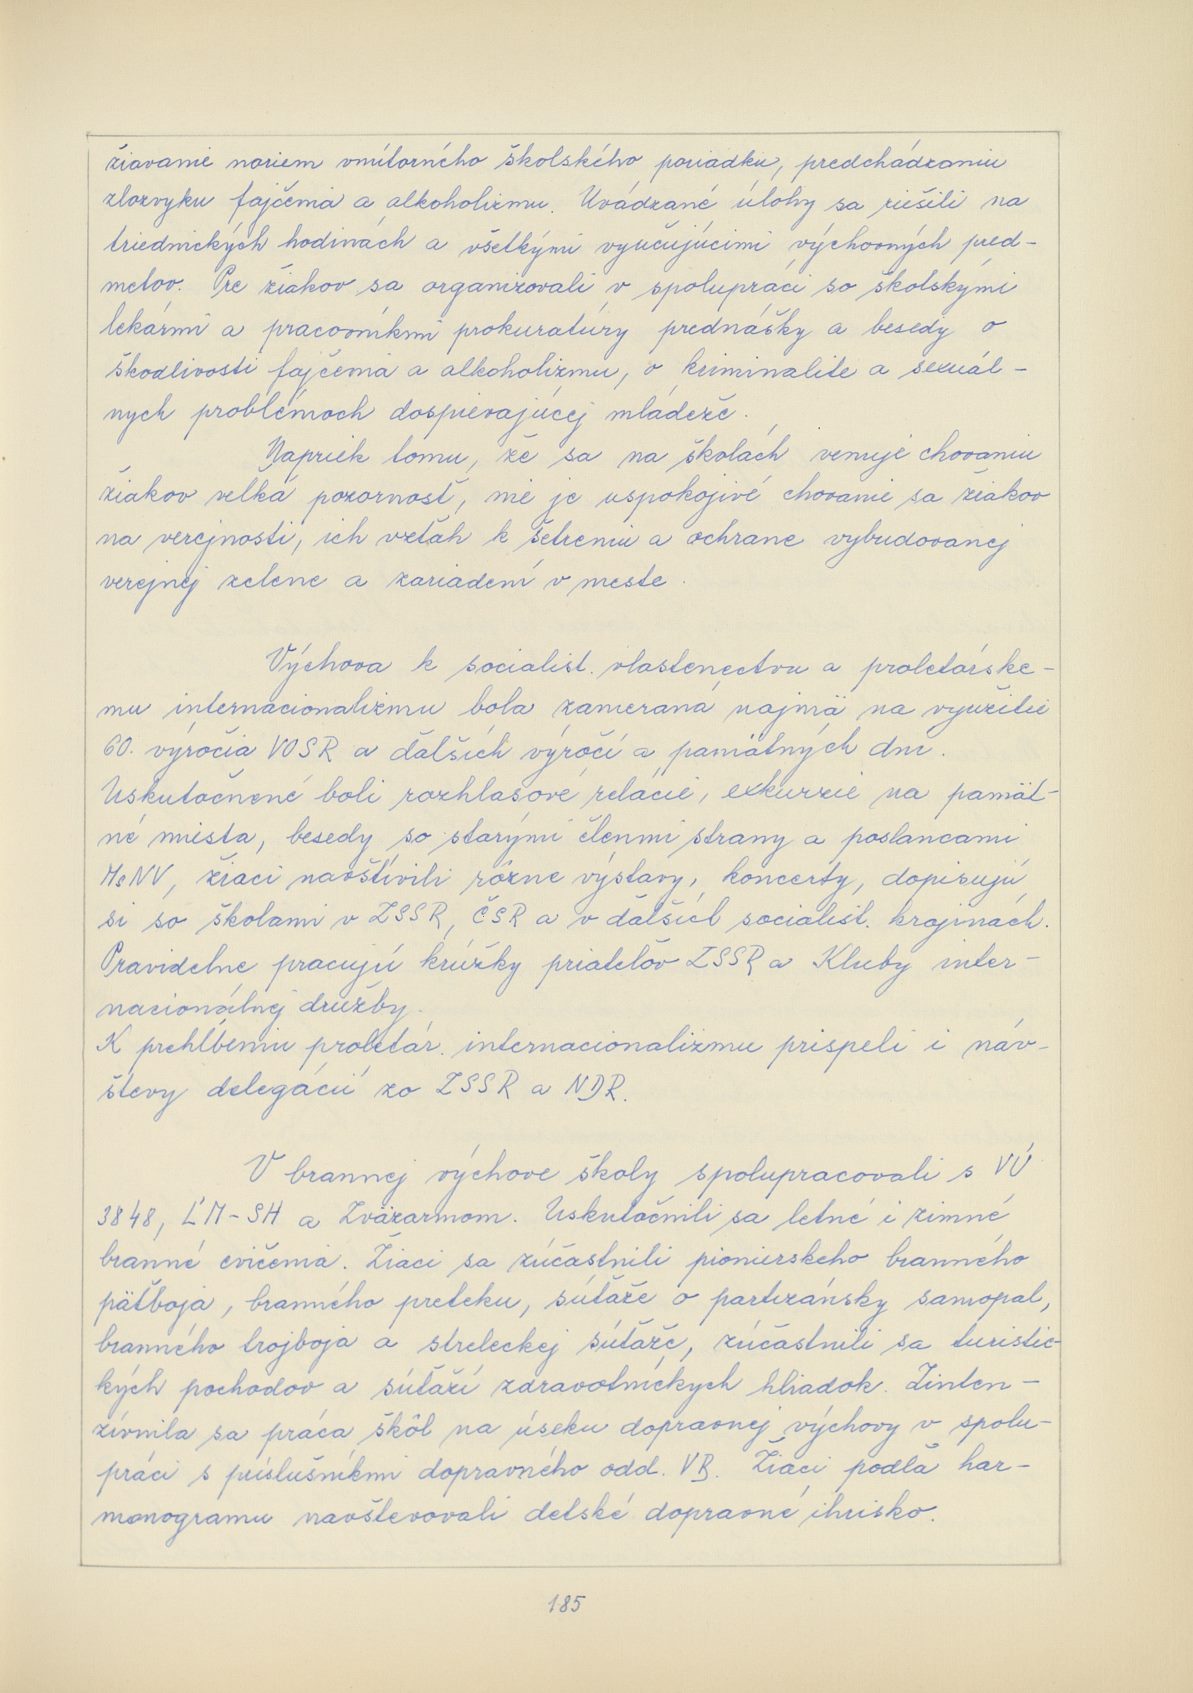 žiavanie noriem vnútorného školského poriadku, predchádzaniu
zlozvyku fajčenia a alkoholizmu. Uvádzané úlohy sa riešili na
triednických hodinách a všetkými vyučujúcimi výchovných pred-
metov. Pre žiakov sa organizovali v spolupráci so školskými
lekármi a pracovníkmi prokuratúry prednášky a besedy o
škodlivosti fajčenia a alkoholizmu, o kriminalite a sexuál-
nych problémoch dospievajúcej mládeže.
Napriek tomu, že sa na školách venuje chovaniu
žiakov veľká pozornosť, nie je uspokojivé chovanie sa žiakov
na verejnosti, ich vzťah k šetreniu a ochrane vybudovanej
verejnej zelene a zariadení v meste.
Výchova k socialist. vlastenectvu a proletárske-
mu internacionalizmu bola zameraná najmä na využitie
60. výročia VOSR a ďalších výročí a pamätných dní.
Uskutočnené boli rozhlasové relácie, exkurzie na pamät-
né miesta, besedy so starými členmi strany a poslancami
MsNV, žiaci navštívili rôzne výstavy, koncerty, dopisujú
si so školami v ZSSR, ČSR a v ďalších socialist. krajinách.
Pravidelne pracujú krúžky priateľov ZSSR a Kluby inter-
nacionálnej družby.
K prehĺbeniu proletár. internacionalizmu prispeli i náv-
števy delegácií zo ZSSR a NDR.
V brannej výchove školy spolupracovali s VÚ
3848, ĽM-SH a Zväzarmom. Uskutočnili sa letné i zimné
branné cvičenia. Žiaci sa zúčastnili pionierskeho branného
päťboja, branného preteku, súťaže o partizánsky samopal,
branného trojboja a streleckej súťaže, zúčastnili sa turistic-
kých pochodov a súťaží zdravotníckych hliadok. Zinten-
zívnila sa práca škôl na úseku dopravnej výchovy v spolu-
práci s príslušníkmi dopravného odd. VB. Žiaci podľa har-
monogramu navštevovali detské dopravné ihrisko.
185